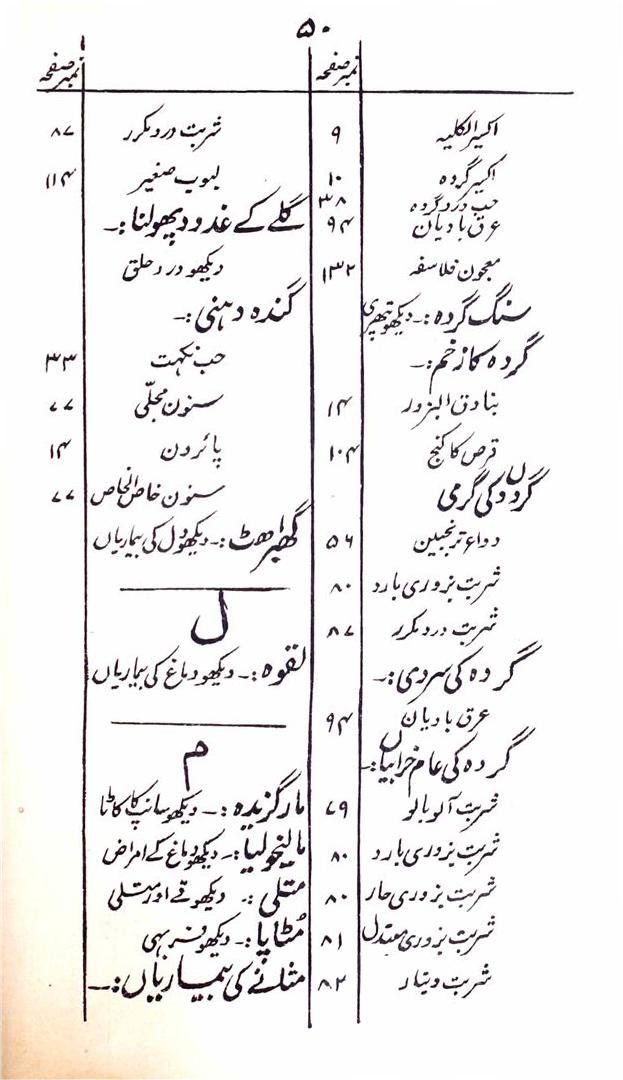 ۵۰
نمبر صفحہ
اکسیر الکلیہ ۹
اکسیر گردہ ۱۰
حب درد گردہ ۳۸
عرق بادیان ۹۴
معجون فلاسفہ ۱۳۲
سنگ گردہ:۔ دیکھو پتھری
گردہ کا زخم:۔
بنادق البزور ۱۴
قرص کاکنج ۱۰۴
گردوں کی گرمی
دواء ترنجبین ۵۶
شربت بزوری بارد ۸۰
شربت درد مکرر ۸۷
گردہ کی سردی:۔
عرق بادیان ۹۴
گردہ کی عام خرابیاں:۔
شربت آلو بالو ۷۹
شربت بزوری بارد ۸۰
شربت بزوری حار ۸۰
شربت بزوری معتدل ۸۱
شربت دینار ۸۲
نمبر صفحہ
شربت درد مکرر ۸۷
لبوب صغیر ۱۱۴
گلے کے غدود پھولنا:۔
دیکھو درد حلق
گندہ دہنی:۔
حب نکہت ۳۳
سنون مجلّی ۷۷
پائرون ۱۴
سنون خاص الخاص ۷۷
گھبراھٹ:۔ دیکھو دل کی بیماریاں
ل
لقوہ:۔ دیکھو دماغ کی بیماریاں
م
مارگزیدہ:۔ دیکھو سانپ کا کاٹا
مالیخولیا:۔ دیکھو دماغ کے امراض
متلی:۔ دیکھو قے اور متلی
مُٹاپا:۔ دیکھو فربہی
مثانے کی بیماریاں:۔